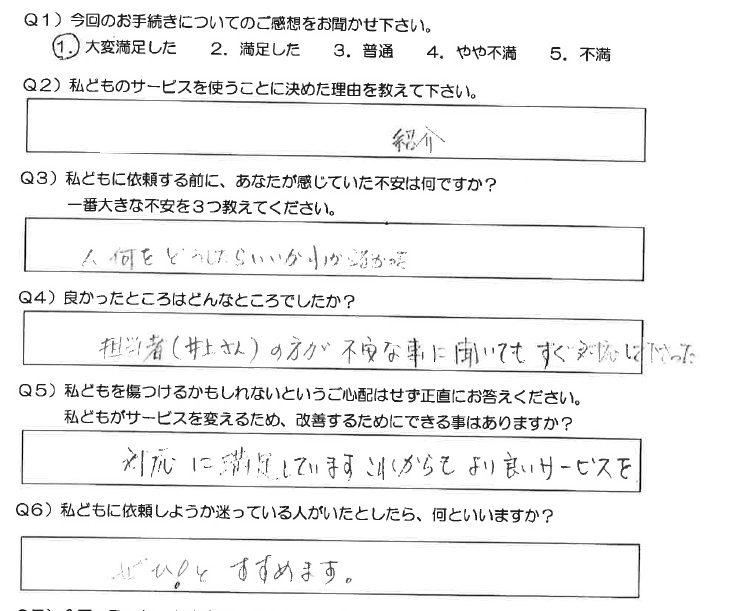 Q1）今回のお手続きについてのご感想をお聞かせ下さい。
1．大変満足した　2．満足した　3．普通　4．やや不満　5．不満
Q2）私どものサービスを使うことに決めた理由を教えて下さい。
紹介
Q3）私どもに依頼する前に、あなたが感じていた不安は何ですか？
一番大きな不安を3つ教えてください。
何をどうしたらいいかわからなかった
Q4）良かったところはどんなところでしたか？
担当者（井上さん）の方が不安な事に聞いてもすぐ対応して下さった
Q5）私どもを傷つけるかもしれないというご心配はせず正直にお答えください。
私どもがサービスを変えるため、改善するためにできる事はありますか？
対応に満足しています これからもより良いサービスを
Q6）私どもに依頼しようか迷っている人がいたとしたら、何といいますか？
ぜひ！とすすめます。